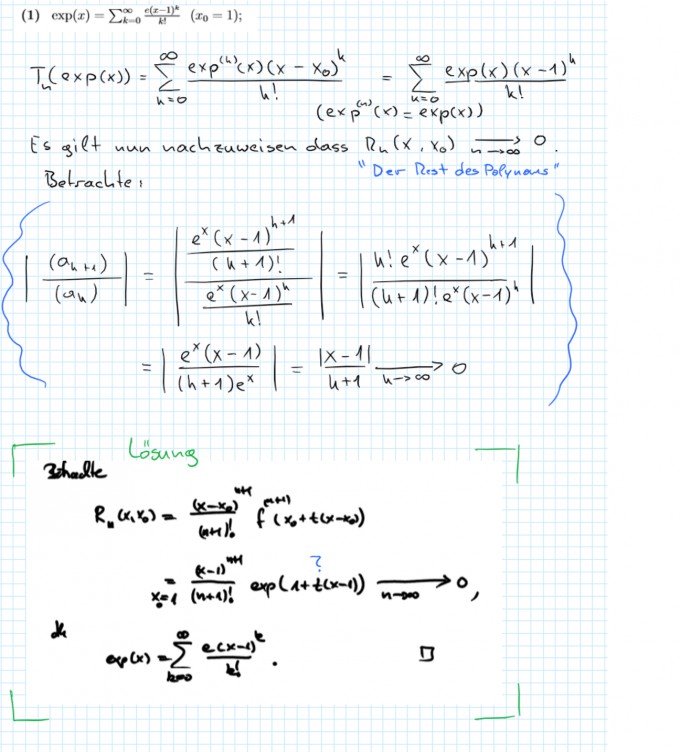 (1) exp(x) = ∑_{k=0}^{∞} e(x−1)^k / k! (x₀ = 1);
T_n(exp(x)) = ∑_{k=0}^{∞} exp^{(k)}(x)(x − x₀)^k / k! = ∑_{k=0}^{∞} exp(x)(x − 1)^k / k!
(exp^{(n)}(x) = exp(x))
Es gilt nun nachzuweisen dass R_n(x, x₀) ⟶_{n→∞} 0.
"Der Rest des Polynoms"
Betrachte:
| (a_{k+1}) / (a_k) | = | (e^x(x − 1)^{k+1} / (k+1)!) / (e^x(x−1)^k / k!) | = | k! e^x(x − 1)^{k+1} / (k+1)! e^x(x−1)^k |
= | e^x(x − 1) / (k+1)e^x | = |x − 1| / k+1 ⟶_{k→∞} 0
Lösung
R_n(x,x₀) = (x−x₀)^{n+1} / (n+1)! f^{(n+1)}(x₀+t(x−x₀))
?
=_{x₀=1} (x−1)^{n+1} / (n+1)! exp(1+t(x−1)) ⟶_{n→∞} 0,
exp(x) = ∑_{k=0}^{∞} e(x−1)^k / k! . □